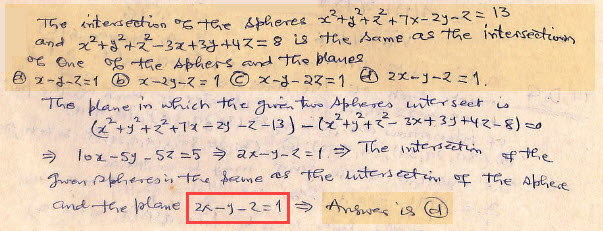 The intersection of the spheres x²+y²+z²+7x-2y-z = 13
and x²+y²+z²-3x+3y+4z = 8 is the same as the intersection
of one of the sphers and the planes
ⓐ x-y-z=1 ⓑ x-2y-z = 1 ⓒ x-y-2z=1 ⓓ 2x-y-z = 1.
The plane in which the given two spheres intersect is
(x²+y²+z²+7x-2y-z-13) - (x²+y²+z²-3x+3y+4z-8) = 0
⇒ 10x-5y-5z = 5 ⇒ 2x-y-z=1. ⇒ The intersection of the
given spheres is the same as the intersection of the sphere
and the plane 2x-y-z=1 ⇒ Answer is ⓓ